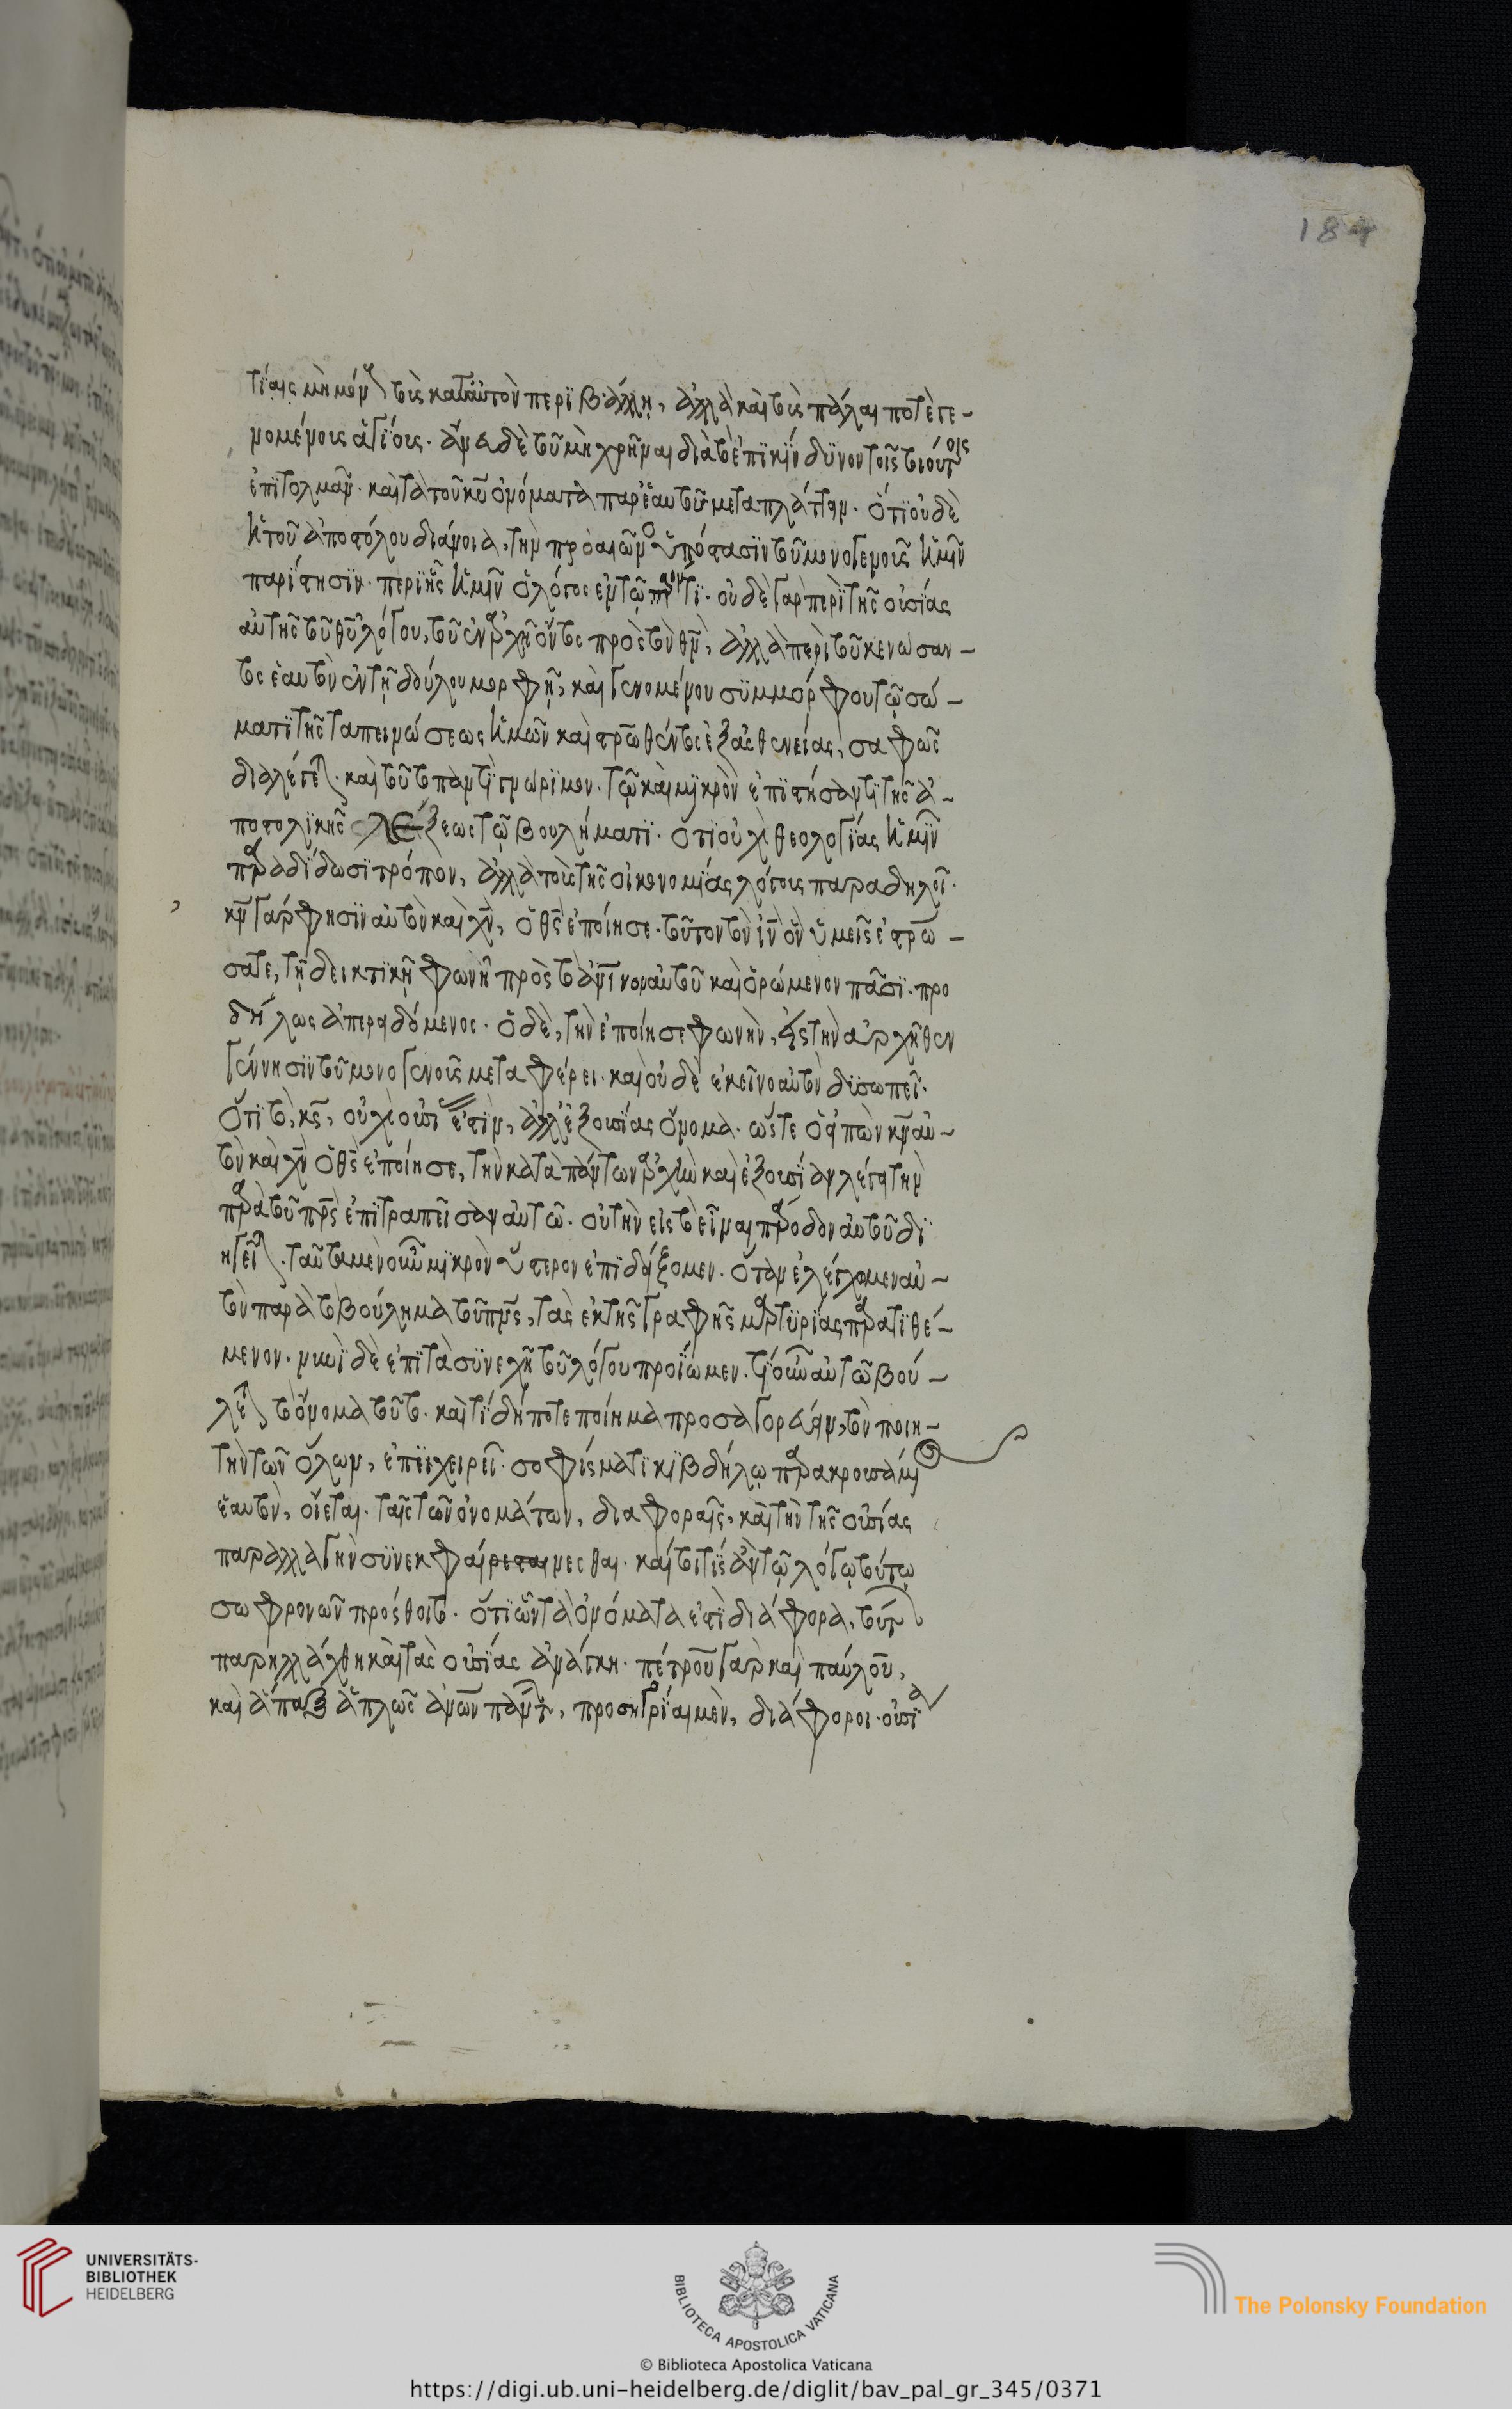 184
τίαις μὴ μόνον τοὺς κατ' αὐτὸν περιβάλλῃ, ἀλλὰ καὶ τοὺς πάλαι ποτὲ γε-
νομένους ἁγίους· ἅμα δὲ τοῦ μὴ χρῆναι διὰ τὸ ἐπικίνδυνον τοῖς τοιούτοις
ἐπιτολμᾶν· καὶ τὰ τοῦ κυ ὀνόματα παρ' ἑαυτοῦ μεταπλάττειν· ὅτι οὐδὲ
ἡ τοῦ ἀποστόλου διάνοια, τὴν πρὸ αἰώνων ὑπόστασιν τοῦ μονογενοῦς ἡμῖν
παρίστησιν· περὶ ἧς ἡμῖν ὁ λόγος ἐν τῷ παρόντι· οὐδὲ γὰρ περὶ τῆς οὐσίας
αὐτῆς τοῦ θυ λόγου, τοῦ ἐν ἀρχῇ ὄντος πρὸς τὸν θν, ἀλλὰ περὶ τοῦ κενώσαν-
τος ἑαυτὸν ἐν τῇ δούλου μορφῇ, καὶ γενομένου συμμόρφου τῷ σώ-
ματι τῆς ταπεινώσεως ἡμῶν καὶ στρωθέντος ἐξ ἀσθενείας, σαφῶς
διαλέγεται· καὶ τοῦτο παντὶ γνώριμον· τῷ καὶ μικρὸν ἐπιστήσαντι τῆς ἀ-
ποστολικῆς λέξεως τῷ βουλήματι· ὅτι οὐχὶ θεολογίας ἡμῖν
παραδίδωσι τρόπον, ἀλλὰ τοὺς τῆς οἰκονομίας λόγους παραδηλοῖ·
κν γάρ φησιν αὐτὸν καὶ χν, ὁ θς ἐποίησε· τοῦτον τὸν ιν ὃν ὑμεῖς ἐστρω-
σατε, τῇ δεικτικῇ φωνῇ πρὸς τὸ ἀνινον αὐτοῦ καὶ ὁρώμενον πᾶσι· προ
δήλως ἀπερειδόμενος· ὁ δὲ, τὴν ἐποίησε φωνὴν, εἰς τὴν ἀρχῆθεν
γέννησιν τοῦ μονογενοῦς μεταφέρει· καὶ οὐδὲ ἐκεῖνο αὐτὸν δυσωπεῖ·
ὅτι τὸ, κς, οὐχὶ οὐσί ἐστίν, ἀλλ' ἐξουσίας ὄνομα· ὥστε ὁ εἰπὼν κν αὐ-
τὸν καὶ χν ὁ θς ἐποίησε, τὴν κατὰ πάντων ἀρχὴν καὶ ἐξουσίαν λέγει τὴν
παρὰ τοῦ πρς ἐπιτραπεῖσαν αὐτῷ· οὐ τὴν εἰς τὸ εἶναι πάροδον αὐτοῦ δι
ηγεῖται· ταῦτα μὲν οὖν μικρὸν ὕστερον ἐπιδείξομεν· ὅταν ἐλέγχομεν αὐ-
τὸν παρὰ τὸ βούλημα τοῦ πνς, τὰς ἐκ τῆς γραφῆς μαρτυρίας παρατιθέ-
μενον· νυνὶ δὲ ἐπὶ τὰ συνεχῆ τοῦ λόγου προΐωμεν· τί οὖν αὐτῷ βού-
λεται τὸ ὄνομα τοῦτο· καὶ τί δήποτε ποίημα προσαγορεύειν, τὸν ποιη-
τὴν τῶν ὅλων, ἐπιχειρεῖ· σοφίσματι κιβδήλῳ παρακρουσάμενος
ἑαυτὸν, οἴεται· ταῖς τῶν ὀνομάτων, διαφοραῖς, καὶ τὴν τῆς οὐσίας
παραλλαγὴν συνεκφαίρεται νεσθαι· καίτοι τίς ἂν τῷ λόγῳ τούτῳ
σωφρονῶν πρόσθοιτο· ὅτι ὧν τὰ ὀνόματά ἐστι διάφορα, τούτων
παρηλλάχθη καὶ τὰς οὐσίας ἀνάγκη· πέτρου γὰρ καὶ παύλου,
καὶ ἅπαξ ἁπλῶς ἀνων πάντων, προσηγορίαι μὲν, διάφοροι· οὐσία
UNIVERSITÄTS-
BIBLIOTHEK
HEIDELBERG
BIBLIOTECA APOSTOLICA VATICANA
The Polonsky Foundation
© Biblioteca Apostolica Vaticana
https://digi.ub.uni-heidelberg.de/diglit/bav_pal_gr_345/0371